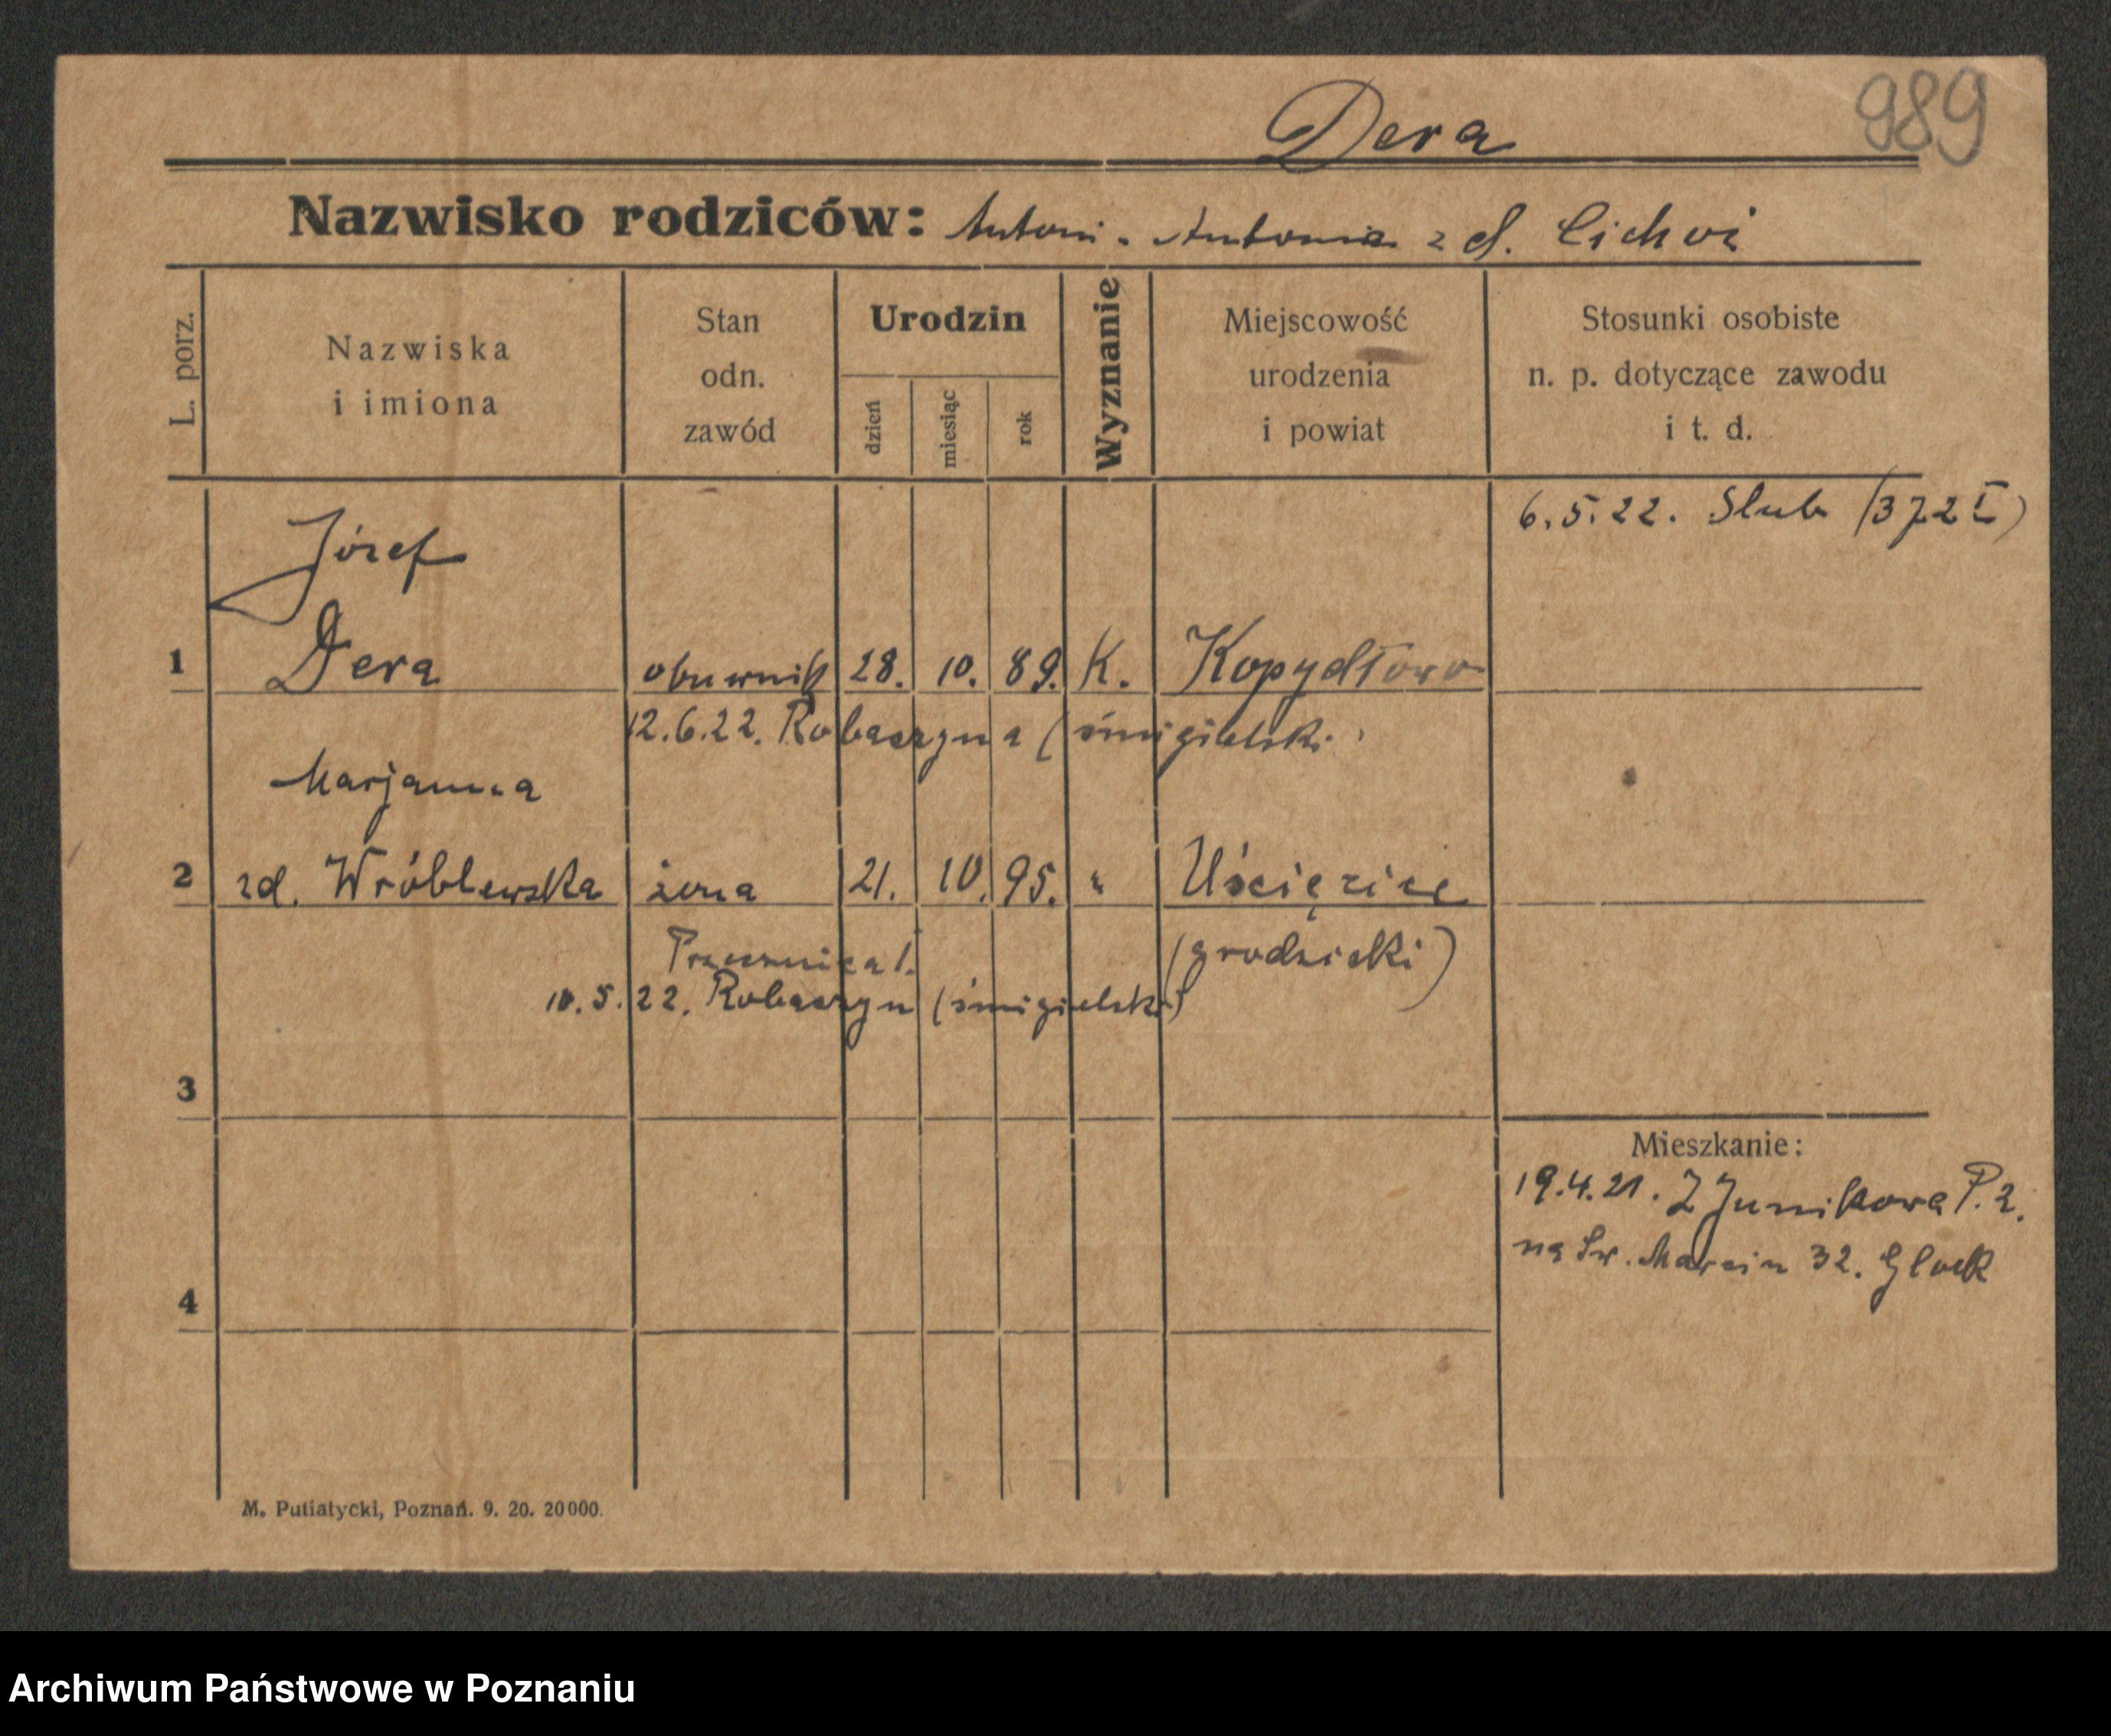 Dera
989
Nazwisko rodziców: Antoni - Antonia z d. Cichoń
L. porz.
Nazwiska i imiona
Stan odn. zawód
Urodzin
dzień
miesiąc
rok
Wyznanie
Miejscowość urodzenia i powiat
Stosunki osobiste n. p. dotyczące zawodu i t. d.
6.5.22. Slub (372 I)
Józef
1 Dera obuwnik 28. 10. 89. K. Kopydłowo
12.6.22. Robaczyna (śmigielski
Marjanna
2 zd. Wróblewska żona 21. 10. 95. " Uścięcice
(grodziski)
10.5.22. Robaczyn (śmigielski)
3
Mieszkanie:
19.4.21. Z Junikowa P. 2.
na Sw. Marcin 32. Glock
4
M. Putiatycki, Poznań. 9. 20. 20000.
Archiwum Państwowe w Poznaniu